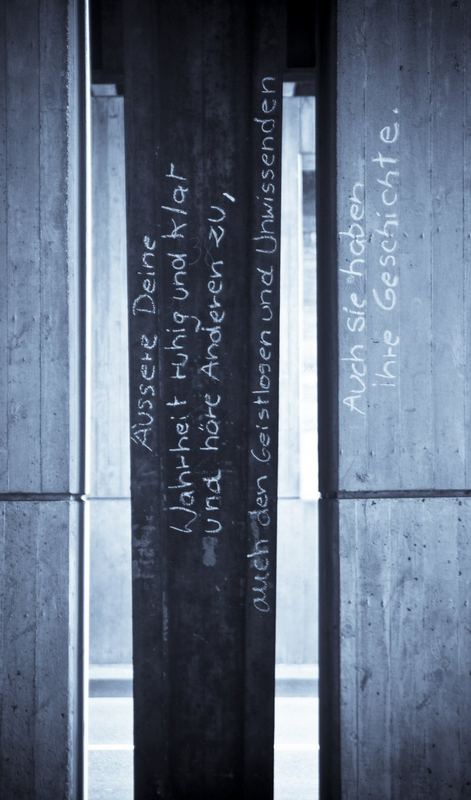 Äussere Deine
Wahrheit ruhig und klar
und höre Anderen zu,
auch den Geistlosen und Unwissenden
Auch sie haben
ihre Geschichte.